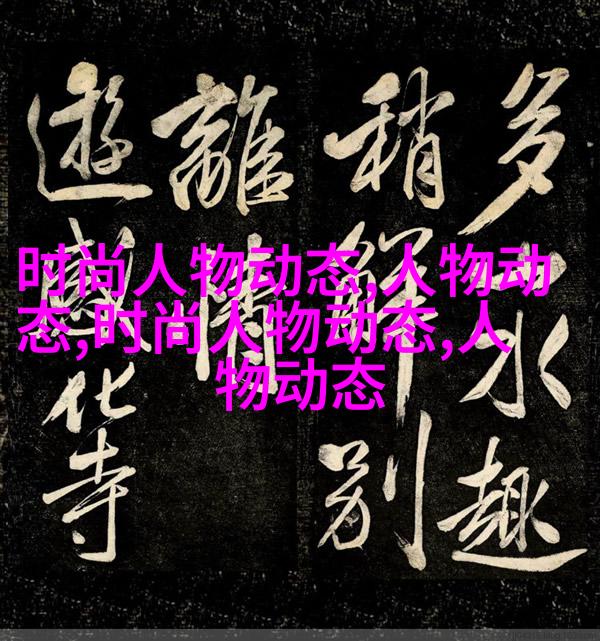 时尚人物动态,人物动
态,时尚人物动态,人
物动态
多水趣
稍解别
離情
遊感化寺